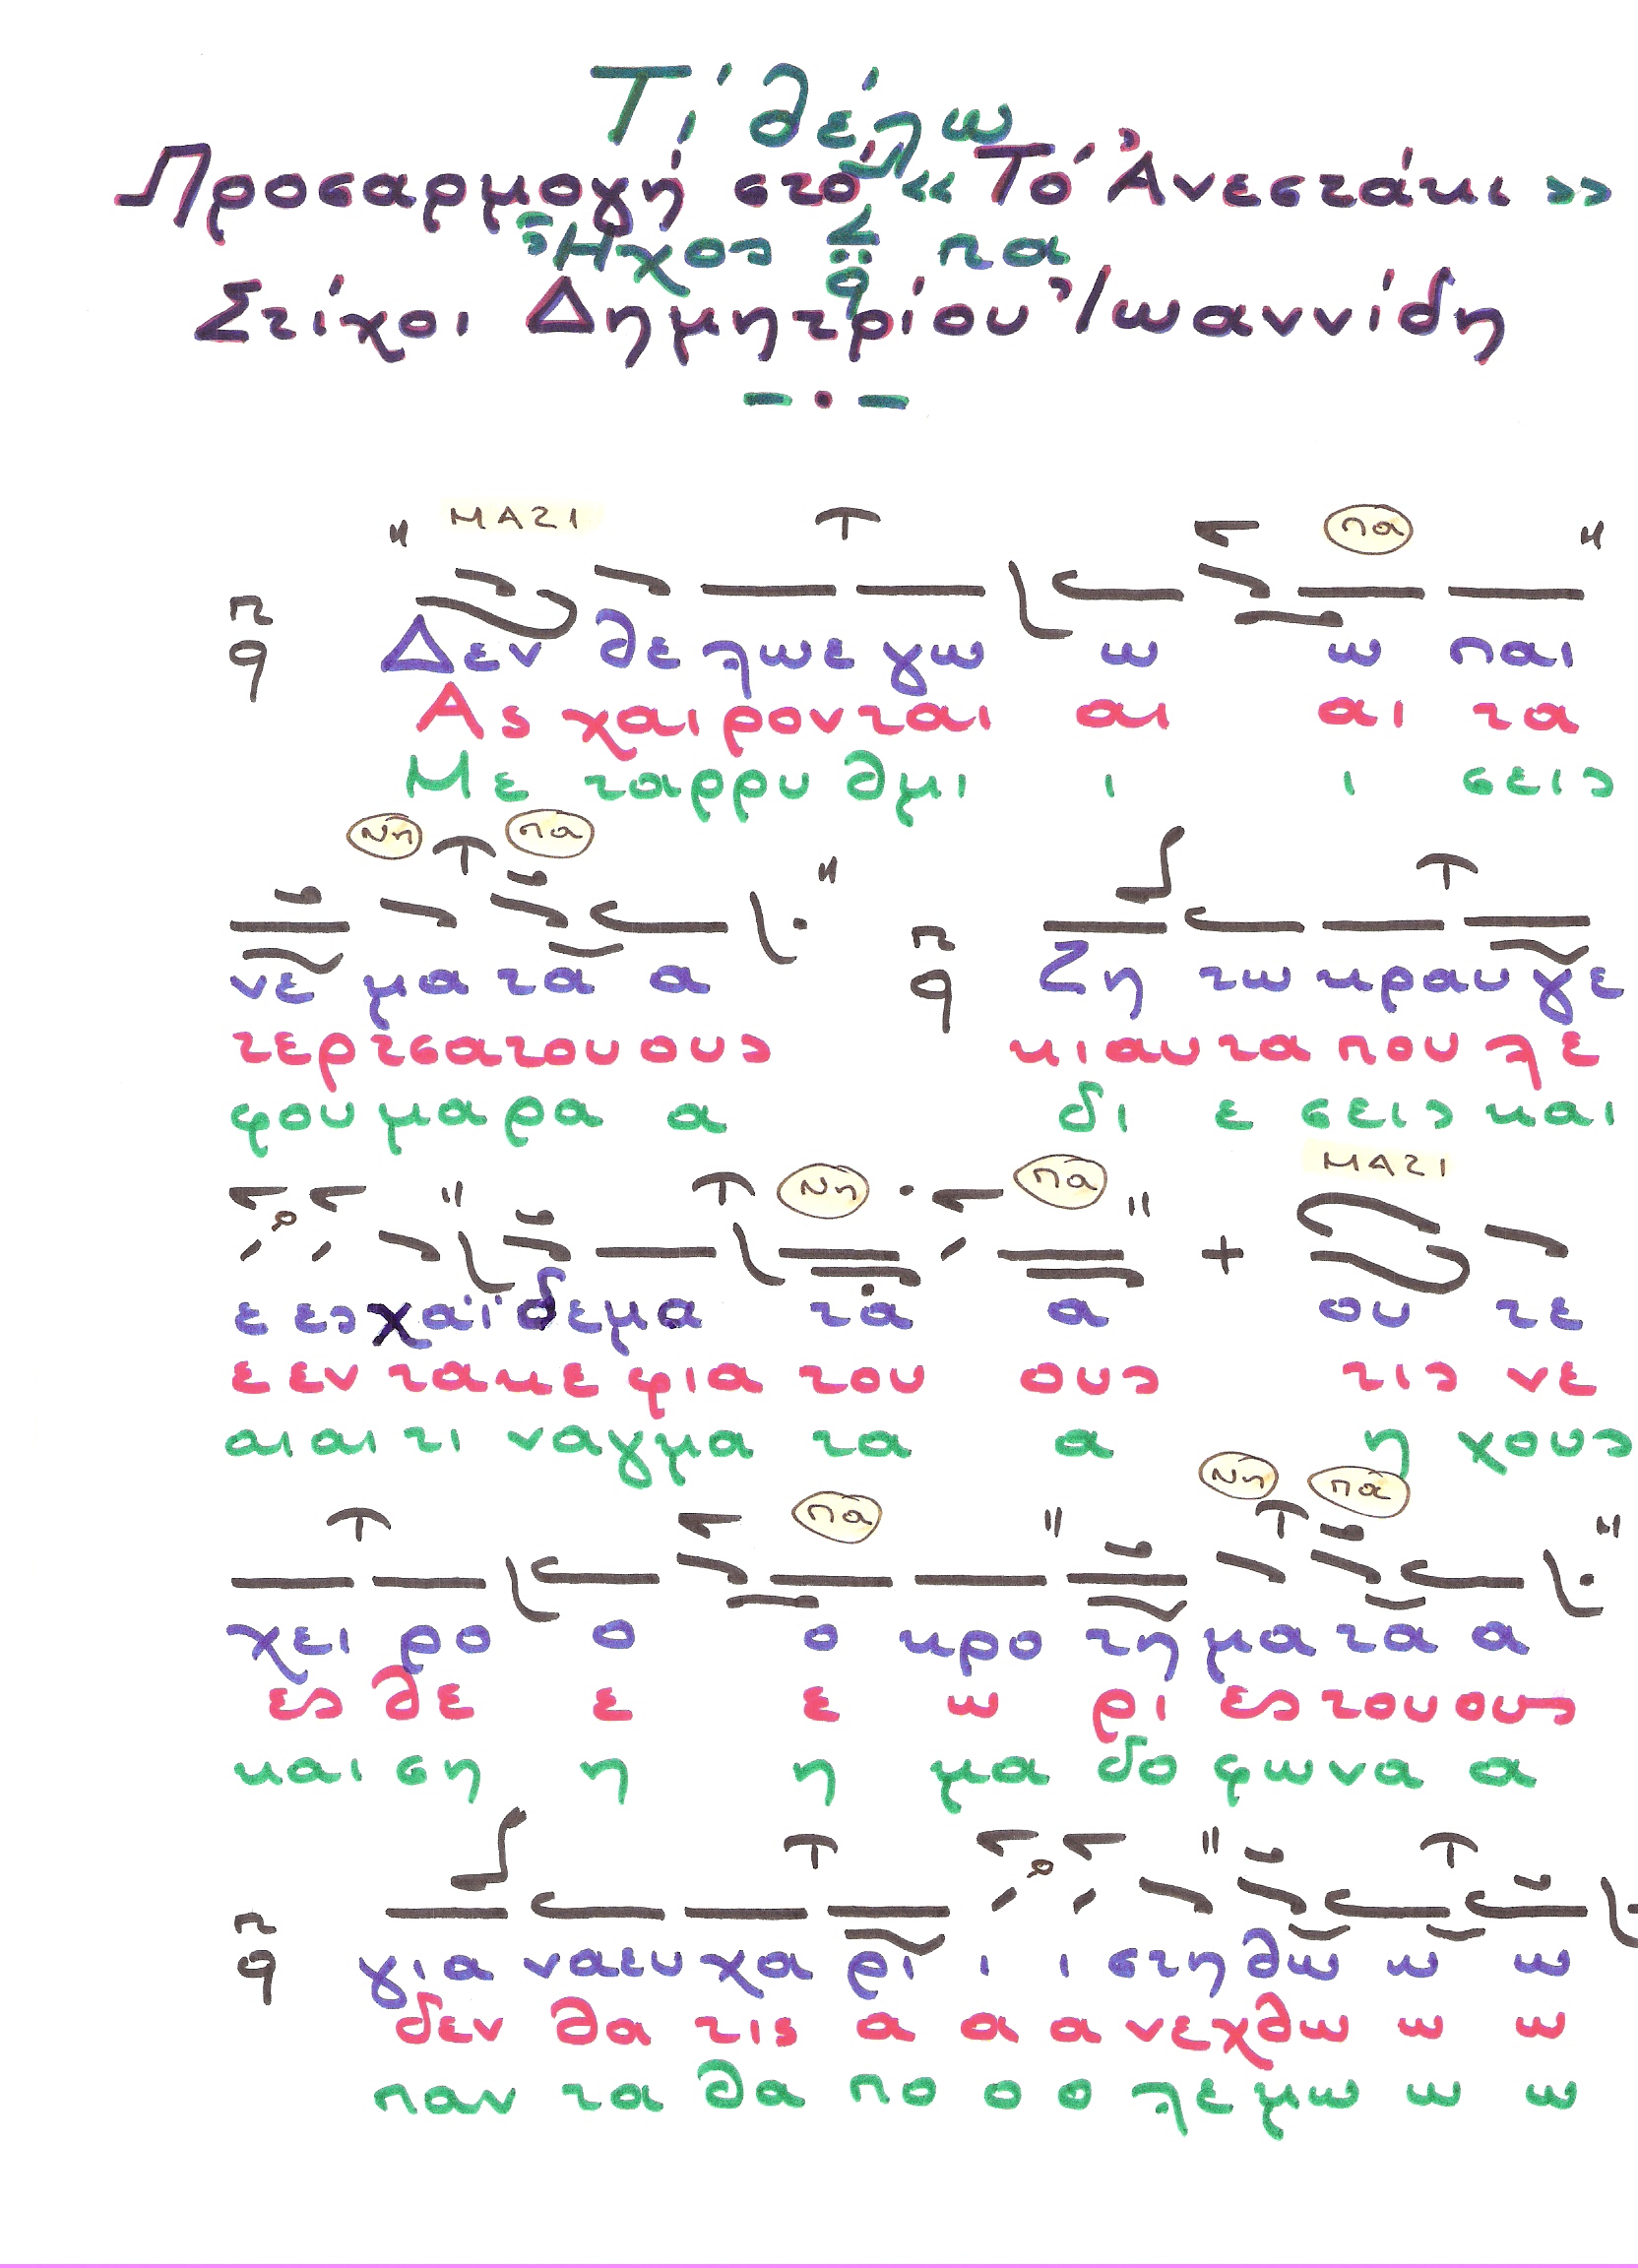 Τί θέλω
Προσαρμογή στό « Τό Ἀνεστάκι »
Ἦχος πα
Στίχοι Δημητρίου Ἰωαννίδη
ΜΑΖΙ
πα
Δεν θε λωε γω ω ω παι
Ας χαι ρονται αι αι τα
Με ταρρυ θμι ι ι σεις
Νη πα
νε μα τα α Ζη τω κραυ γε
τερτσατου ους κιαυτα που λε
φου μαρα α δι ε σεις και
Νη πα ΜΑΖΙ
ε ες χαϊδεμα τα α ου τε
ε εν τακε φια του ους τις νε
αι αι τι ναγμα τα α η χους
πα Νη πα
χει ρο ο ο κρο τη μα τα α
ες θε ε ε ω ρι ες του ους
και ση η η μα δο φωνα α
για ναευ χα ρι ι ι στη θω ω ω
δεν θα τις α α α νεχθω ω ω
παν τα θα πο ο ο λε μω ω ω